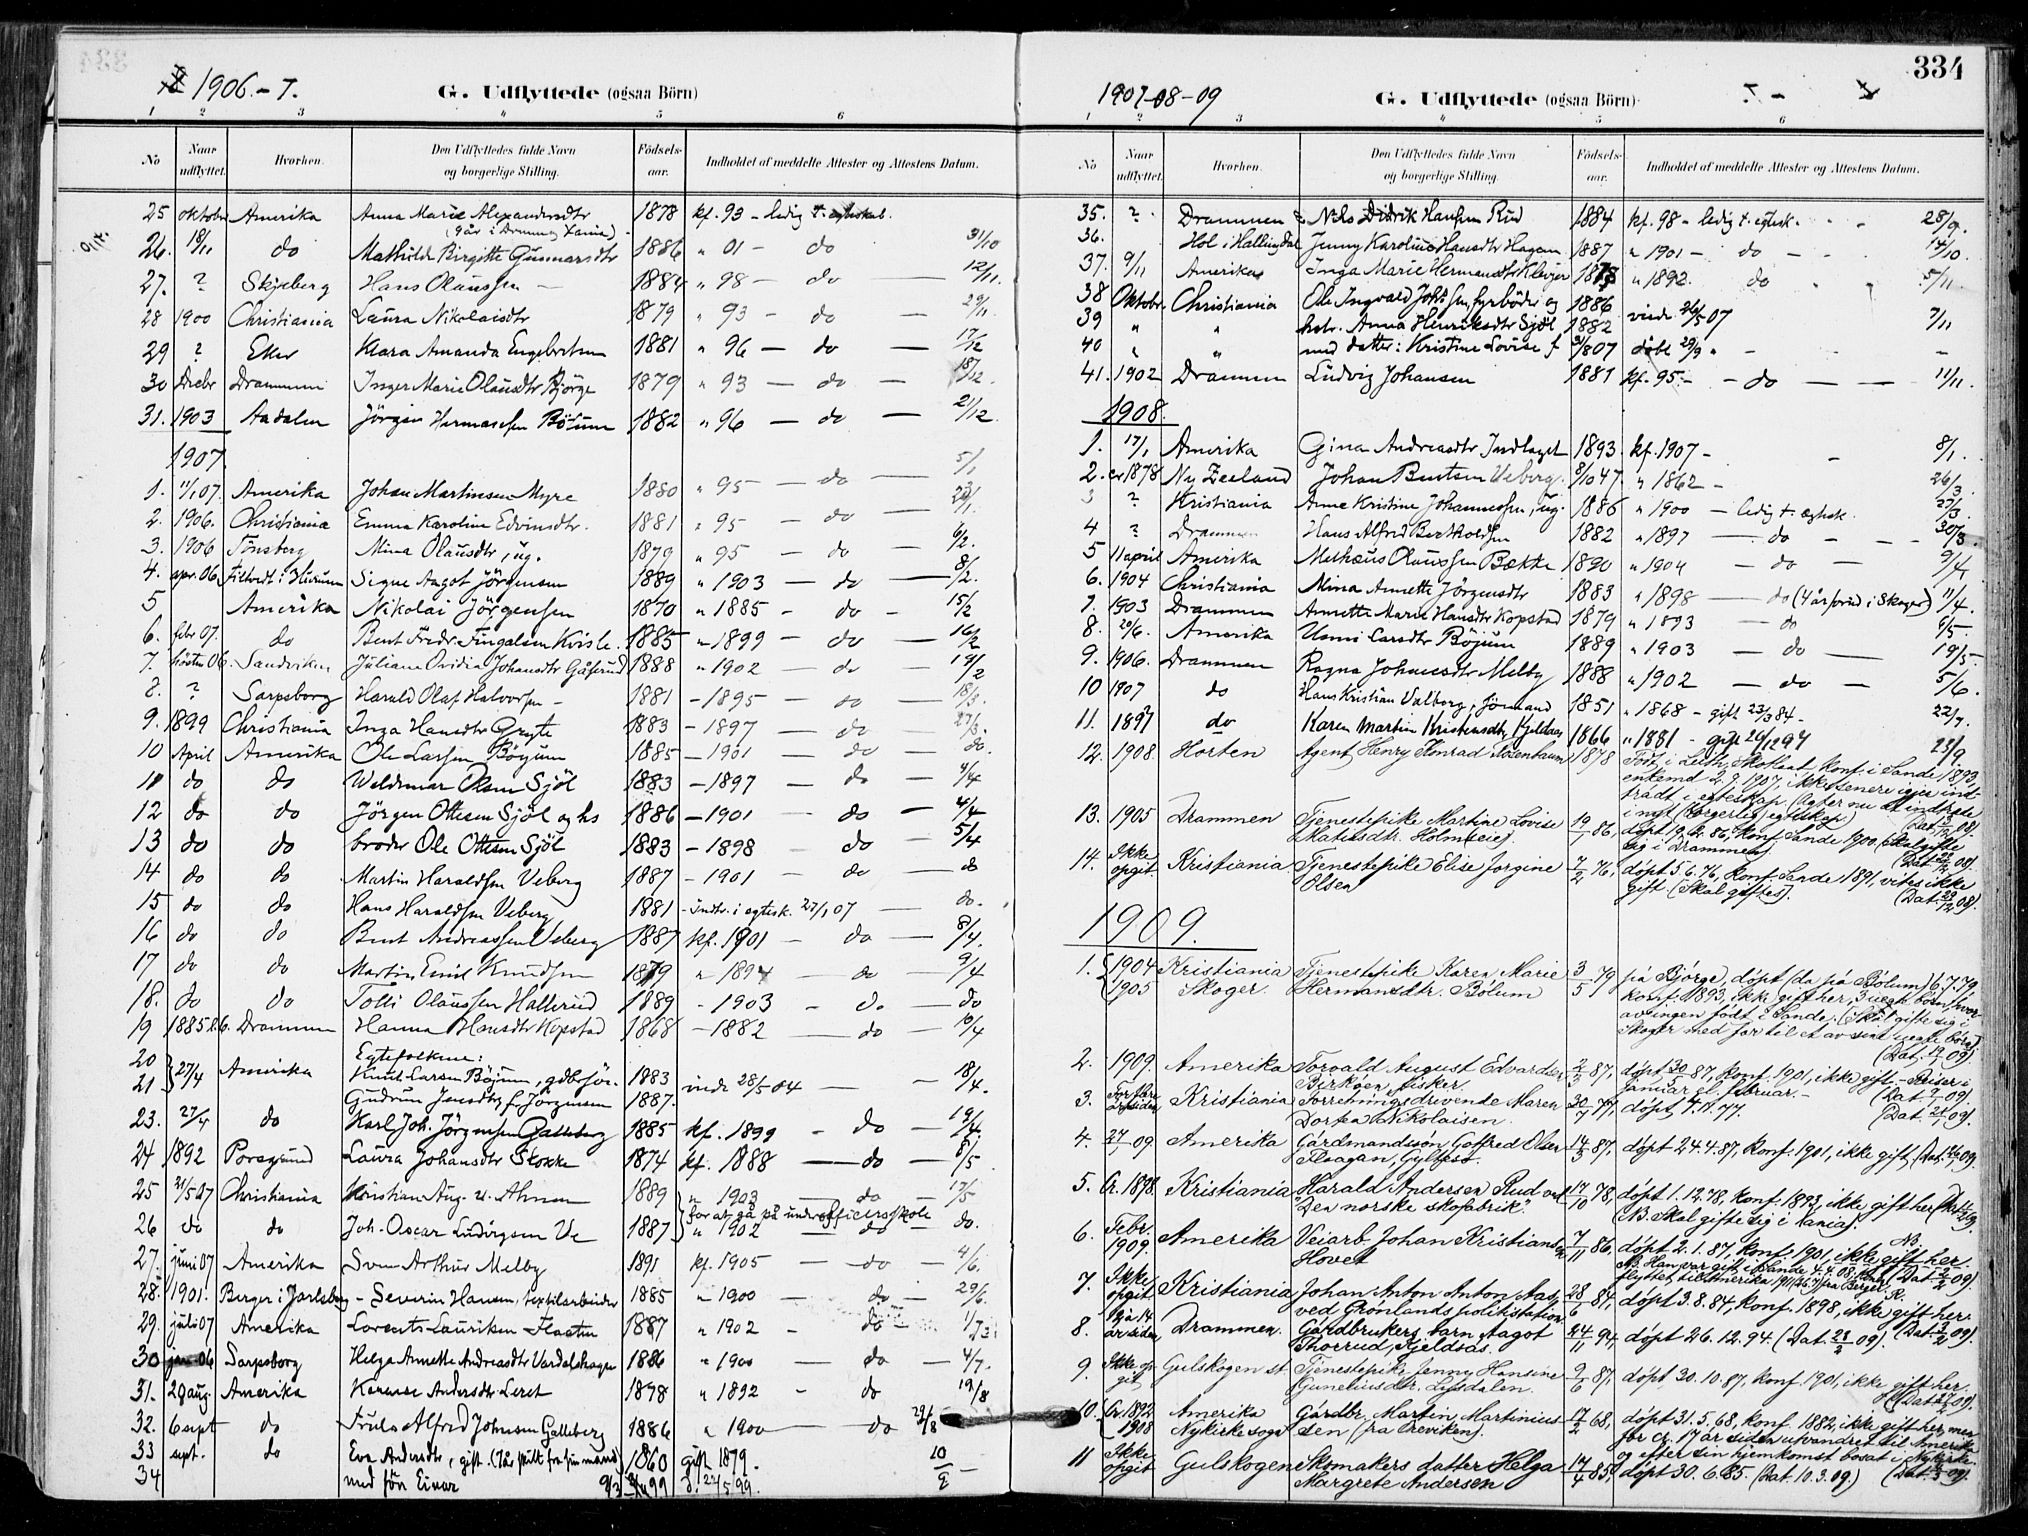 334
1906.-7.
G. Udflyttede (ogsaa Börn)
1 2 3 4 5 6
No Naar udflyttet. Hvorhen. Den Udflyttedes fulde Navn og borgerlige Stilling. Födsels-aar. Indholdet af meddelte Attester og Attestens Datum.
25 oktober Amerika Anna Marie Alexandersdtr 1878 kf. 93 - ledig t. egteskab.
26. 18/11 do Mathilde Birgitte Gunnarsdtr 1886 " 01 - do 31/10
27. ? Skjeberg Hans Olaussen 1884 " 98 - do 12/11.
28 1900 Christiania Laura Nikolaisdtr 1879 " 93 - do 29/11.
29 ? Eker Klara Amanda Engebretsen 1881 " 96 - do 17/12
30 Decbr Drammen Inger Marie Olausdtr Bjørge 1879 " 93 - do 18/12.
31. 1903 Aadalen Jörgen Hermansen Bölum 1882 " 96 - do 21/12.
1907.
1. 11/1 07. Amerika Johan Martinsen Myre 1880 " 95 - do 5/1
2. 1906. Christiania Emma Karoline Edvinsdtr. 1881 " 95 - do
3. 1906 Tönsberg Mina Olausdtr, ug. 1879 " 95 - do 6/2.
4. apr. 06 Filtvedt i Hurum Signe Aagot Jörgensen 1889 " 1903 - do 8/2.
5 Amerika Nikolai Jörgensen 1870 " 1885 - do 15/2
6. febr 07. do Bent Fredr. Fingalsen Kvisle. 1885 " 1899 - do 16/2
7. hösten 06. Sandviken Juliane Ovidia Johansdtr Gåserud 1888 " 1902 - do 19/2
8. ? Sarpsborg Harald Olaf Halvorsen 1881 - 1895 - do 18/3.
9. 1899 Christiania Inga Hansdtr Gryte 1883 - 1897 - do 27/3.
10 April Amerika Ole Larsen Böjum 1885 - 1901 do do.
11 do do Woldemar Olsen Sjöl 1883 - 1897 - do 4/4
12 do do Jörgen Ottesen Sjöl og hs 1886 - 1901 do 4/4
13 do do broder Ole Ottesen Sjöl 1883 - 1898 - do 5/4
14 do do Martin Haraldsen Veberg 1887 - 1901 - do do
15 do do Hans Haraldsen Veberg 1881 - indtr. i egtesk. 27/1 07 do.
16 do do Bent Andreassen Veberg 1887 kf. 1901 - do 8/4.
17 do do Martin Emil Knudsen 1879 " 1894 - do 9/4
18. do do Totti Olaussen Hallerud 1889 - 1903 - do do
19 1885 Drammen Hanna Hansdtr Kopstad 1868 - 1882 - do 10/4
Egtefolkene:
20 21 } 27/4 Amerika Knut Larsen Böjum, gdbrfør. 1883 viede 28/5 04 18/4.
Gudrun Jensdtr, f. Jörgensen 1887.
23. 27/4 do Karl Joh. Jörgensen Galleberg 1885 kf. 1899 - do 19/4.
24 1892 Porsgrund Laura Johansdtr Skokke 1874 kf. 1888 - do 8/5
25 21/5 07 Christiania Kristian Aug. 1889 " 1903 - do 17/5
for at gå på underofficersskole
26 do do Joh. Oscar Ludvigsen Ve 1887 " 1902 do do.
27. juni 07 Amerika Sven Arthur Melby 1891 kf. 1905 - do - 4/6.
28. 1901. Berger i Jarlsberg - Severin Hansen, textilarbeider 1885 " 1900 - do 29/6.
29. juli 07 Amerika Lorents Lauriksen Flaaten 1887 " 1902 - do
30 06 Sarpsborg Helga Annette Andreasdtr Vardalshagen 1886 " 1900 - do - 4/7.
31. 29 aug. Amerika Andersdtr Leret 1878 " 1892 - do 19/8
32. 6 sept do Alfred Johnsen Galleberg 1886 " 1900 - do 29/8
33 sept. do Eva Andersdtr, gift. 1860 gift 1879. 10/9 -
34 med sön Einar 99 d. 22/5 99.
1907-08-09
G. Udflyttede (ogsaa Börn)
1 2 3 4 5 6
No Naar udflyttet. Hvorhen. Den Udflyttedes fulde Navn og borgerlige Stilling. Fødsels-aar. Indholdet af meddelte Attester og Attestens Datum.
35. ? Drammen Nils Didrik Hansen Rud 1884 kf. 98 - ledig t. egtesk. 28/9.
36. Hol i Hallingdal Jenny Karoline Hansdtr Hagen 1887 " 1901 - do 14/10.
37. 9/11 Amerika Inga Marie Hermansdtr Klevjer 1878 " 1892 do 5/11.
38 Oktober Christiania Ole Ingvald Johssen, fyrböder og 1886 viede 26/5 07 7/11
39 " " hstr. Anna Henriksdtr Sjöl 1882
40 " " med datter: Kristine Lovise f 2/8 07 döbt 29/9 " - -
41. 1902 Drammen Ludvig Johansen 1881 kf. 95 - do 11/11.
1908.
1. 17/1 Amerika Gina Andreasdtr Indlaget 1893 kf. 1907 - 8/1.
2. ca 1878 Ny Zeeland Johan Bentsen Veberg. 8/10 47 " 1862 - 26/3.
3 ? Kristiania Anne Kristine Johannessen, ug. 1886 " 1900 - ledig t. egtesk. 27/3.
4 ? Drammen Hans Alfred Bertholdsen 1882 " 1897 - do 30/3.
5 11 april Amerika Mathæus Olaussen Bække 1890 " 1904 - do 9/4
6. 1904 Christiania Mina Annette Jörgensdtr 1883 " 1898 - do (4 år forud i Skoger) 11/4.
7. 1903 Drammen Annette Marie Hansdtr Kopstad 1879 " 1893 - do 6/5.
8. 20/6. Amerika Unni Larsdtr Böjum 1889 " 1903 - do 19/5.
9. 1906. Drammen Ragna Johansdtr Melby 1888 " 1902 - do 5/6.
10 1907 do Hans Kristian Valborg, Sömand 1851 " 1868 - gift 23/3 84 - 22/7.
11. 1897 do Karen Martin Kristensdtr, Kjeldaas 1866 " 1881 - gift 26/12 97
12. 1908. Horten Agent Henry Konrad Rosenbaum 1878 Født i Leith, Skotland, konf. i Sande 1893, 23/9.
enkemd 2.9.1907, ikke senere igjen ind-
trådt i egteskap. (Agter nu at indtræde
i nyt (borgerlig) egteskap)
13. 1905 Drammen Tjenestepike Martine Lovise Matisdtr. Holm(eie). 19/1 86, døpt 19.2.86, konf. Sande 1900. (Skal gifte
sig i Drammen).
14. Ikke opgit. Kristiania Tjenestepike Elise Jørgine Olsen 7/2 76, døpt 5.6.76, konf. Sande 1891, vites ikke
gift. (Skal giftes).
1909.
1. { 1904 1905 Kristiania Skoger. Tjenestepike Karen Marie Hermansdtr. Bølum 3/5 79 på Bjørge, døpt (da på Bølum) 6.7.79
konf. 1893, ikke gift her, 3 uegte børn, hvor-
av ingen født i Sande. (Skal gifte sig i
Skoger med far til et av sine uegte børn).
2. 1909. Amerika Torvald August Edvardsen Birkøen, fisker. 2/3 87, døpt 30/5 87, konf. 1901, ikke gift. - Reiser i
januar el. februar. -
3. For flere år siden, Kristiania Forretningsdrivende Maren Dorthea Nikolaisen. 30/7 77, døpt 4.11.77.
4. 27/2 09. Amerika Gårdmandssøn Gotfred Olsen Flaagan, Gyltesø. 14/3 87, døpt 24.4.87, konf. 1901, ikke gift
5. Ca. 1878. Kristiania Harald Andersen Rud ved "Den norske skofabrik". 17/10 78, døpt 1.12.78, konf. 1893, ikke gift her
(NB. Skal gifte sig i Xania).
6. Febr. 1909. Amerika Veiarb. Johan Kristiansen Hovet 7/11 86, døpt 2.1.87, konf. 1901, ikke gift her.
NB. Han var gift i Sande 4.4.08.
7. Ikke opgit. Kristiania Johan Anton Anton Aas, ved Grønlands politistation 28/6 84, døpt 3.8.84, konf. 1898, ikke gift her.
8. For 14 år siden, Drammen. Gårdbrukers barn Aagot Thorrud, Kjeldsås. 24/11 94, døpt 26.12.94 (Dat. 28/2 09).
9 Ikke opgit Gulskogen st. Tjenestepike Jenny Hansine Gunelinsdtr. Lersdalen. 9/6 87, døpt 30.10.87, konf. 1901, ikke gift her.
10. Ca. 1892 1908 Amerika Nykirke sogn Gårdbr. Martin Martinius-sen (fra Ørevikens). 17/2 68, døpt 31.5.68, konf. 1882, ikke gift her, men
for ca. 17 år siden utvandret til Amerika
og efter sin hjemkomst bosat i Nykirke.
11 Ikke opgit Gulskogen Skomakers datter Helga Margrete Andersen 17/4 85, døpt 30.6.85. (Dat. 10.3.09)